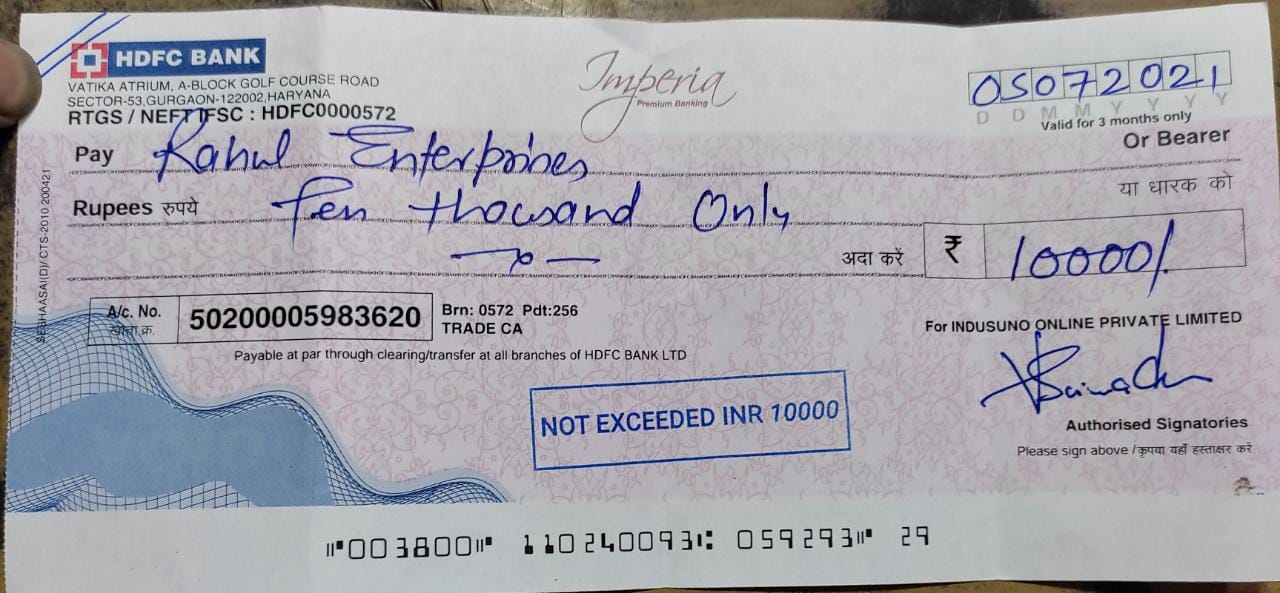 HDFC BANK
VATIKA ATRIUM, A-BLOCK GOLF COURSE ROAD
SECTOR-53,GURGAON-122002,HARYANA
RTGS / NEFT IFSC : HDFC0000572
Imperia
Premium Banking
05072021
D D M M Y Y Y Y
Valid for 3 months only
Pay Rahul Enterprises Or Bearer
या धारक को
Rupees रुपये Ten thousand Only
अदा करें ₹ 10000/
A/c. No. 50200005983620 Brn: 0572 Pdt:256
खाता क्र. TRADE CA
Payable at par through clearing/transfer at all branches of HDFC BANK LTD
For INDUSUNO ONLINE PRIVATE LIMITED
NOT EXCEEDED INR 10000
Authorised Signatories
Please sign above / कृपया यहाँ हस्ताक्षर करें
⑈003800⑈ 110240093⑆ 059293⑈ 29
CTS-2010 200421